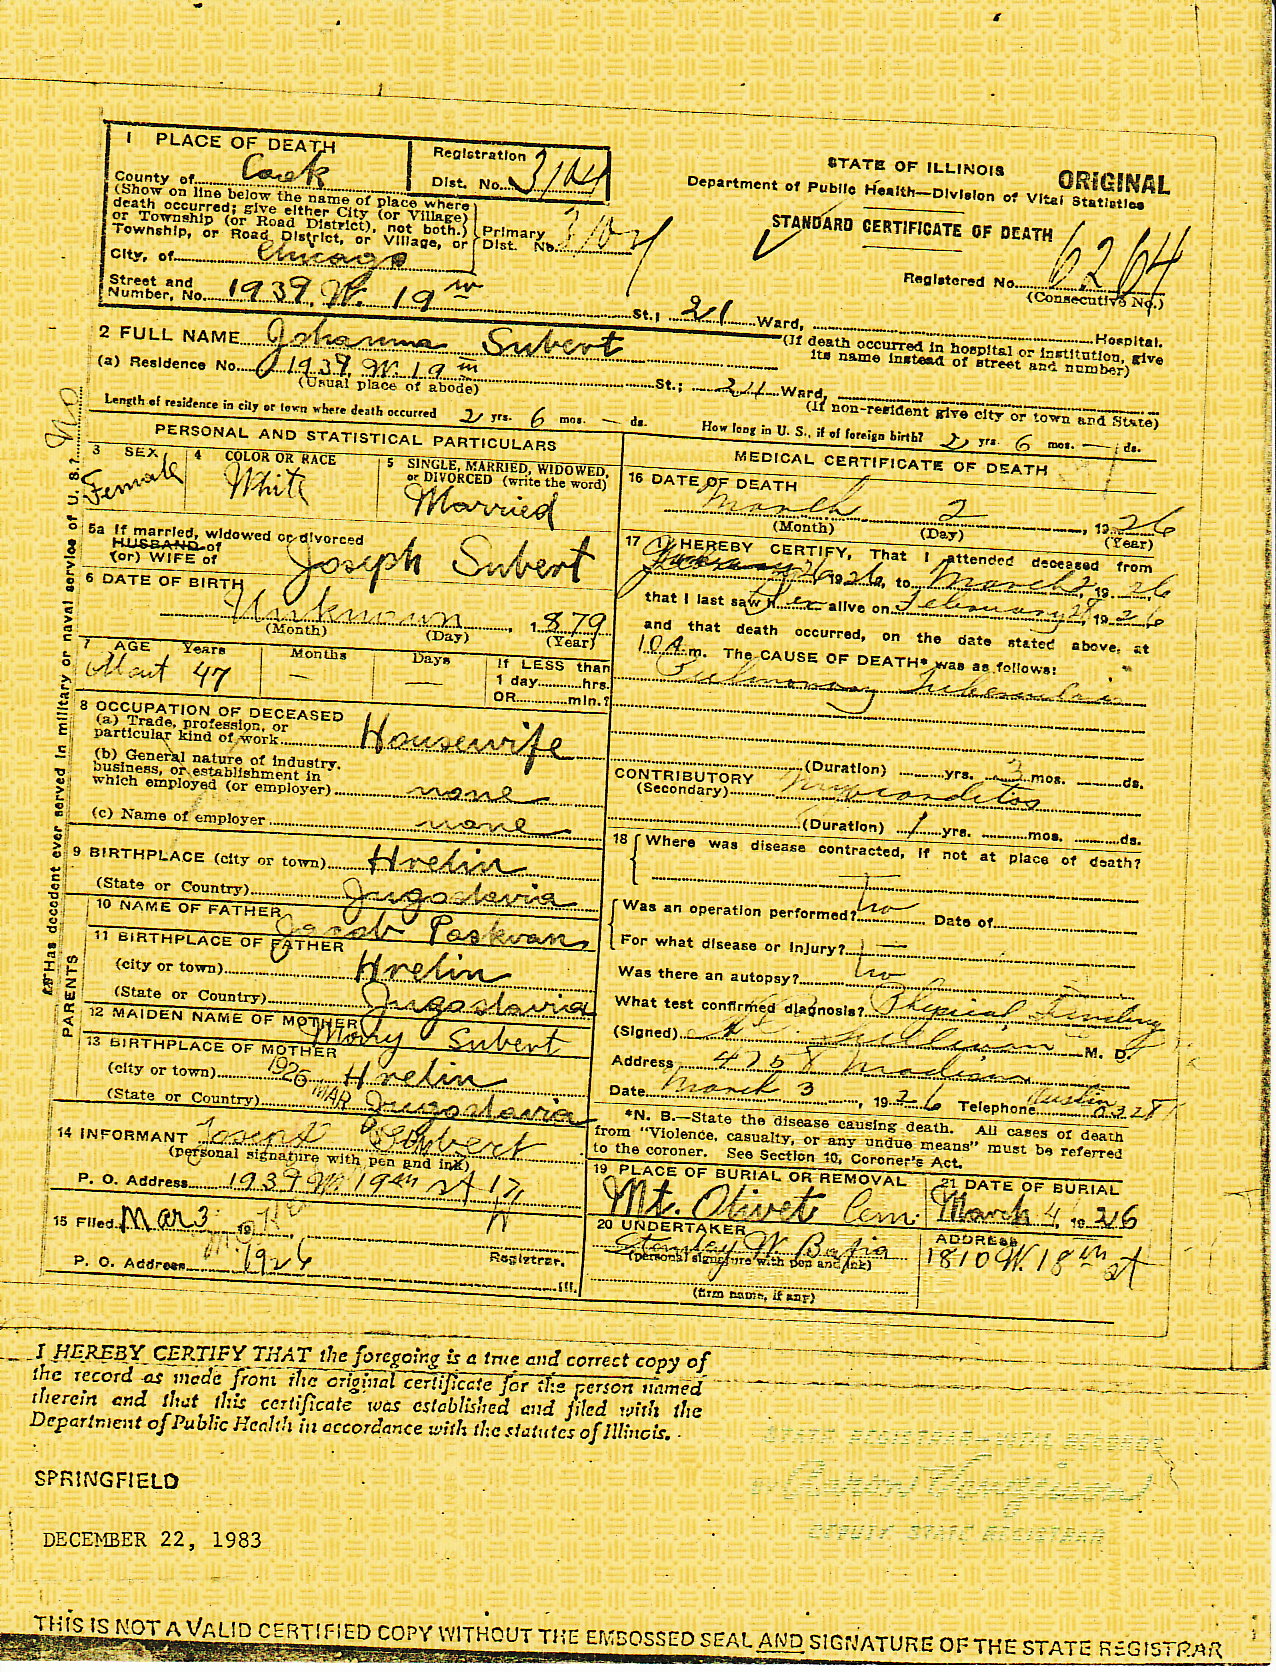 1 PLACE OF DEATH
County of Cook
Registration Dist. No. 3104
(Show on line below the name of place where
death occurred; give either City (or Village)
or Township (or Road District), not both.)
Township, or Road District, or Village, or
City, of Chicago
Primary Dist. No. 3104
Street and Number, No. 1939 W. 19th St.; 21 Ward, Hospital.
(If death occurred in hospital or institution, give
its name instead of street and number)
STATE OF ILLINOIS
ORIGINAL
Department of Public Health—Division of Vital Statistics
STANDARD CERTIFICATE OF DEATH
Registered No. 6264
(Consecutive No.)
2 FULL NAME Johanna Subert
(a) Residence No. 1939 W. 19th St.; 21 Ward,
(Usual place of abode)
(If non-resident give city or town and State)
Length of residence in city or town where death occurred 2 yrs. 6 mos. — ds.
How long in U. S., if of foreign birth? 2 yrs. 6 mos. — ds.
Has decedent ever served in military or naval service of U. S.? No
PERSONAL AND STATISTICAL PARTICULARS
3 SEX Female
4 COLOR OR RACE White
5 SINGLE, MARRIED, WIDOWED,
or DIVORCED (write the word)
Married
5a If married, widowed or divorced
HUSBAND of
(or) WIFE of Joseph Subert
6 DATE OF BIRTH
Unknown, 1879
(Month) (Day) (Year)
7 AGE Years Months Days
About 47 — —
If LESS than
1 day hrs.
OR min.?
8 OCCUPATION OF DECEASED
(a) Trade, profession, or
particular kind of work Housewife
(b) General nature of industry,
business, or establishment in
which employed (or employer) none
(c) Name of employer none
9 BIRTHPLACE (city or town) Hrelin
(State or Country) Jugoslavia
PARENTS
10 NAME OF FATHER Jacob Paskvan
11 BIRTHPLACE OF FATHER
(city or town) Hrelin
(State or Country) Jugoslavia
12 MAIDEN NAME OF MOTHER Mary Subert
13 BIRTHPLACE OF MOTHER
(city or town) Hrelin
(State or Country) Jugoslavia
1926 MAR
14 INFORMANT Joseph Subert
(personal signature with pen and ink)
P. O. Address 1939 W 19th St
15 Filed Mar 3 19
1926
Registrar.
P. O. Address Ill.
MEDICAL CERTIFICATE OF DEATH
16 DATE OF DEATH
March 2, 1926
(Month) (Day) (Year)
17 I HEREBY CERTIFY, That I attended deceased from
26 1926, to March 2, 1926
that I last saw her alive on February 28, 1926
and that death occurred, on the date stated above, at
10 A.m. The CAUSE OF DEATH* was as follows:
Pulmonary Tuberculosis
(Duration) yrs. 3 mos. ds.
CONTRIBUTORY Myocarditis
(Secondary)
(Duration) 1 yrs. mos. ds.
18 Where was disease contracted, if not at place of death?
—
Was an operation performed? no Date of
For what disease or injury? —
Was there an autopsy? no
What test confirmed diagnosis? Physical Finding
(Signed) M. D.
Address 4758 Madison
Date March 3, 1926 Telephone Austin 0328
*N. B.—State the disease causing death. All cases of death
from "Violence, casualty, or any undue means" must be referred
to the coroner. See Section 10, Coroner's Act.
19 PLACE OF BURIAL OR REMOVAL
Mt. Olivet Cem.
21 DATE OF BURIAL
March 4, 1926
20 UNDERTAKER
Stanley W. Bafia
(personal signature with pen and ink)
(firm name, if any)
ADDRESS
1810 W. 18th St
I HEREBY CERTIFY THAT the foregoing is a true and correct copy of
the record as made from the original certificate for the person named
therein and that this certificate was established and filed with the
Department of Public Health in accordance with the statutes of Illinois.
SPRINGFIELD
DECEMBER 22, 1983
STATE REGISTRAR—VITAL RECORDS
DEPUTY STATE REGISTRAR
THIS IS NOT A VALID CERTIFIED COPY WITHOUT THE EMBOSSED SEAL AND SIGNATURE OF THE STATE REGISTRAR